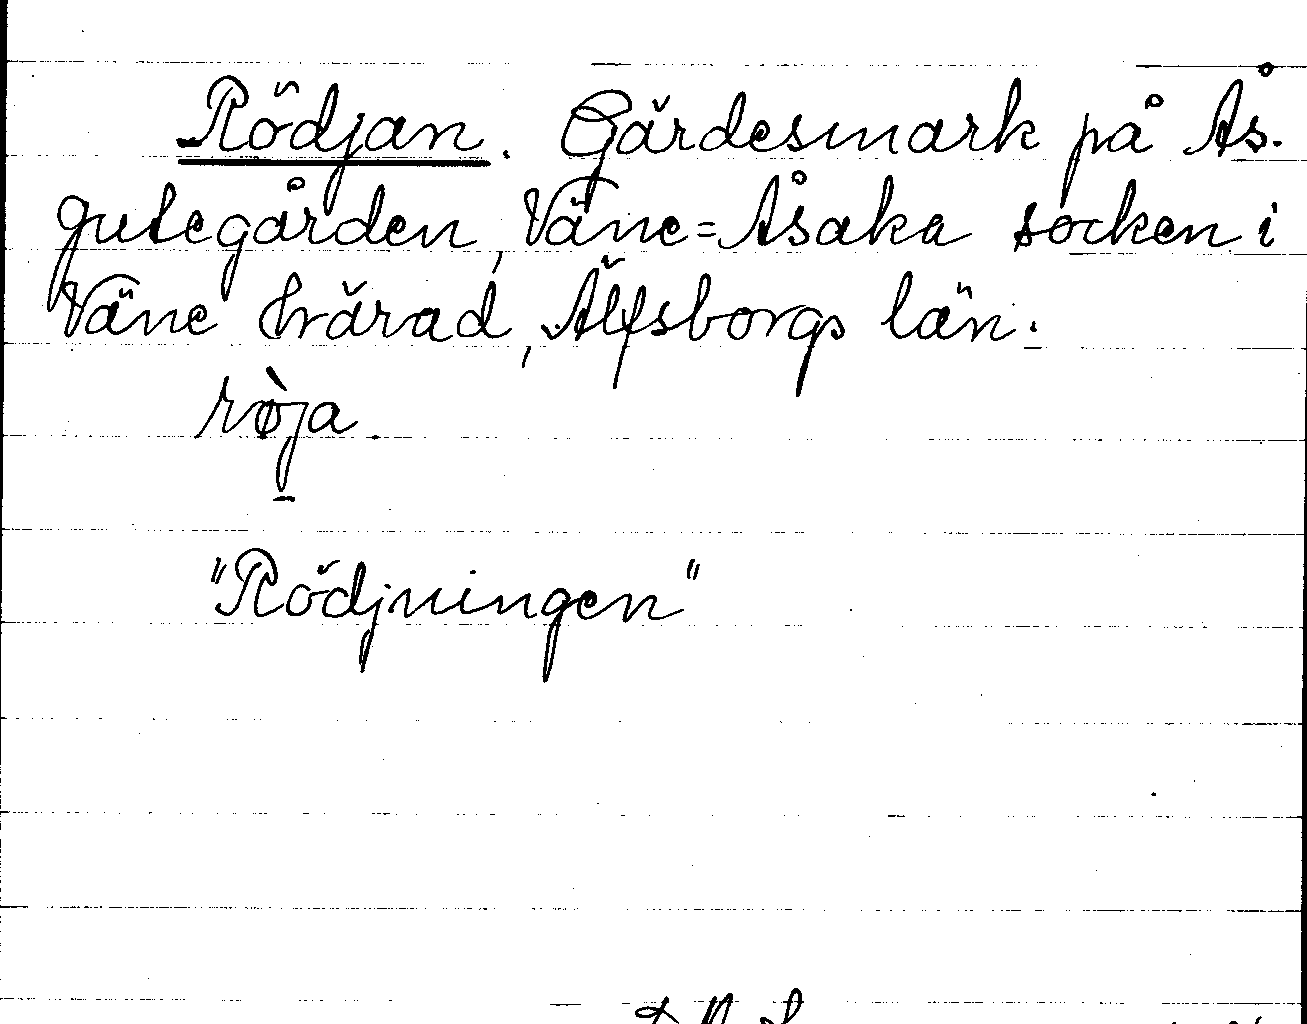 Rödjan. Gärdesmark på Ås-
gutegården, Väne=Åsaka socken i
Väne härad, Älfsborgs län.
rø̀ja
"Rödjningen"